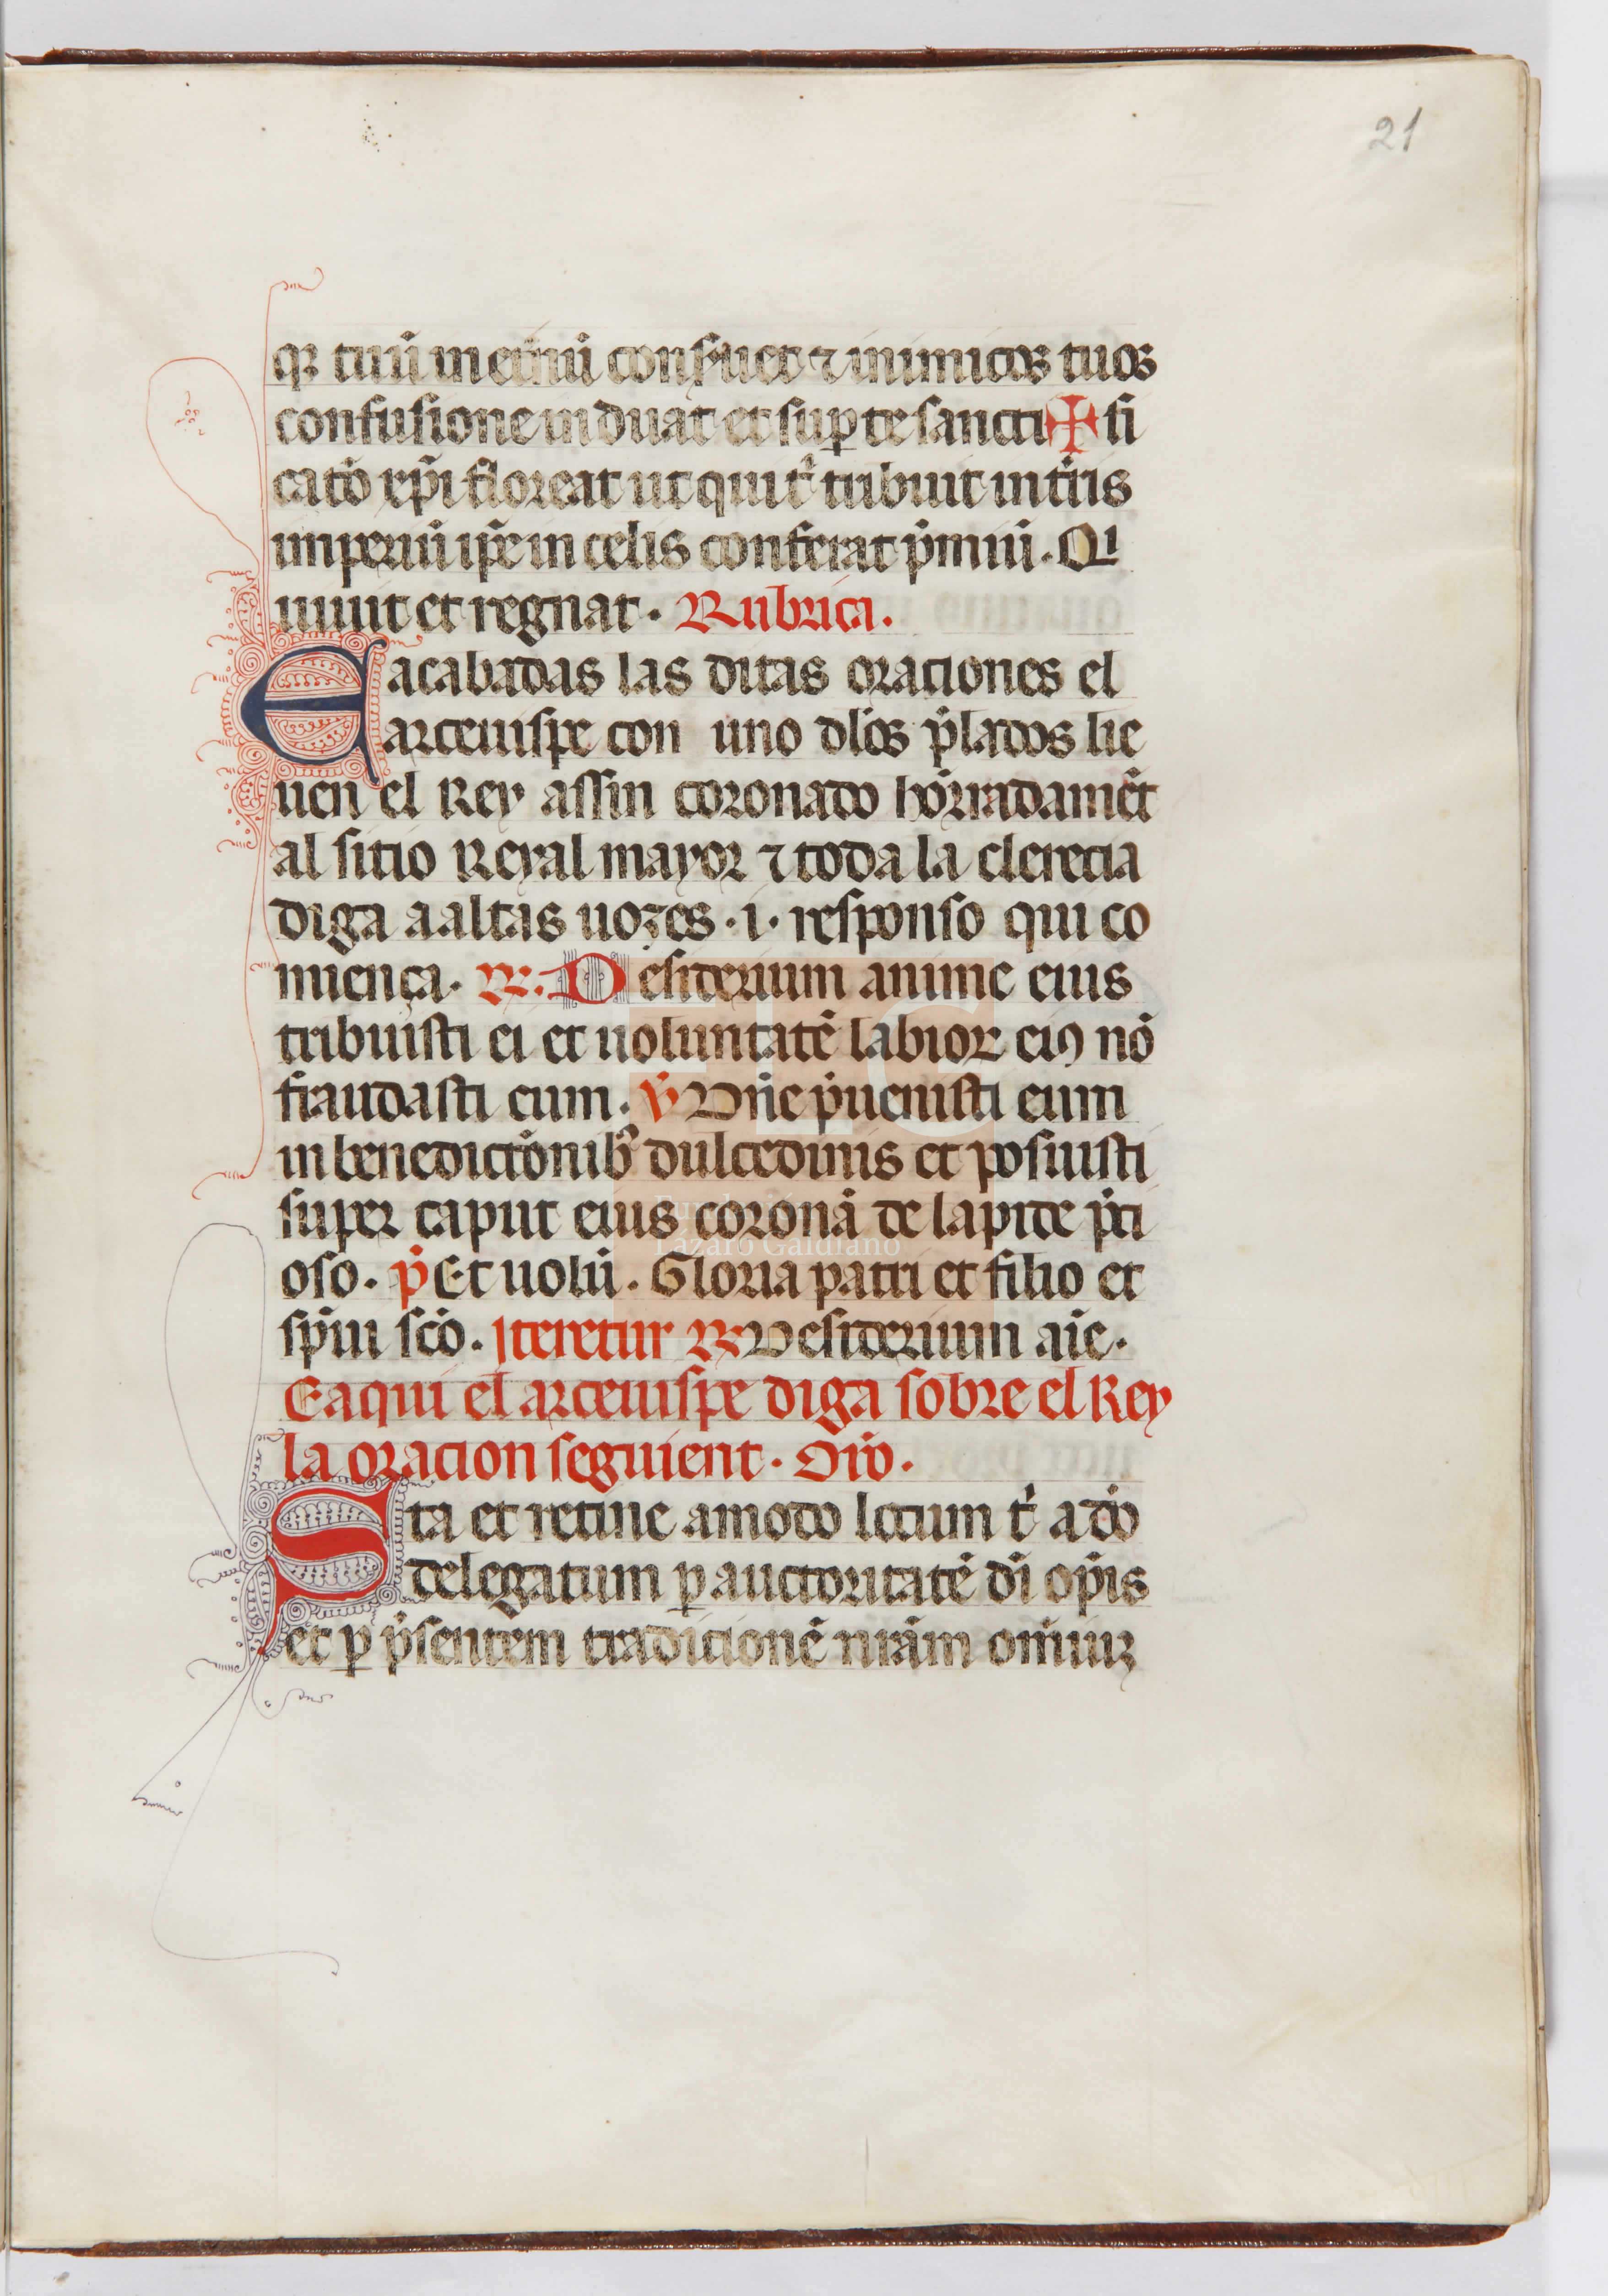 21
qꝫ tuū in et̃nū conſ̃uet ⁊ inimicos tuos
confusione induat et suꝑ te sancti✠fi
catō xp̃i floreat ut qui t̾ tribuit in tr̃is
imperiū ip̃e in celis conferat p̃miū. Qi
uiuit et regnat. Rubrica.
E acabadas las ditas oraciones el
arceuispe con uno dłos p̃lados lie
uen el Rey assin coronado hōrradamēt
al sitio Reyal mayor ⁊ toda la clerecia
diga a altas uozes .i. responso qui co
miença. R. Desiderium anime eius
tribuisti ei et uoluntatē labioꝝ eiꝯ nō
fraudasti eum. V̾ Dñe p̃uenisti eum
in benedictōnibꝰ dulcedinis et posuisti
super caput eius coronā de lapide p̃ci
oso. p̃ Et uolū. Gloria patri et filio et
sp̃ui sc̃o. Iteretur R Desiderium aīe.
E aqui el arceuispe diga sobre el Rey
la oracion seguient. Orō.
Sta et retine amodo locum t̾ a dō
delegatum ꝑ auctoritatē dī op̃is
et ꝑ p̃sentem tradicionē nr̃am om̃iuꝫ
Lázaro Galdiano